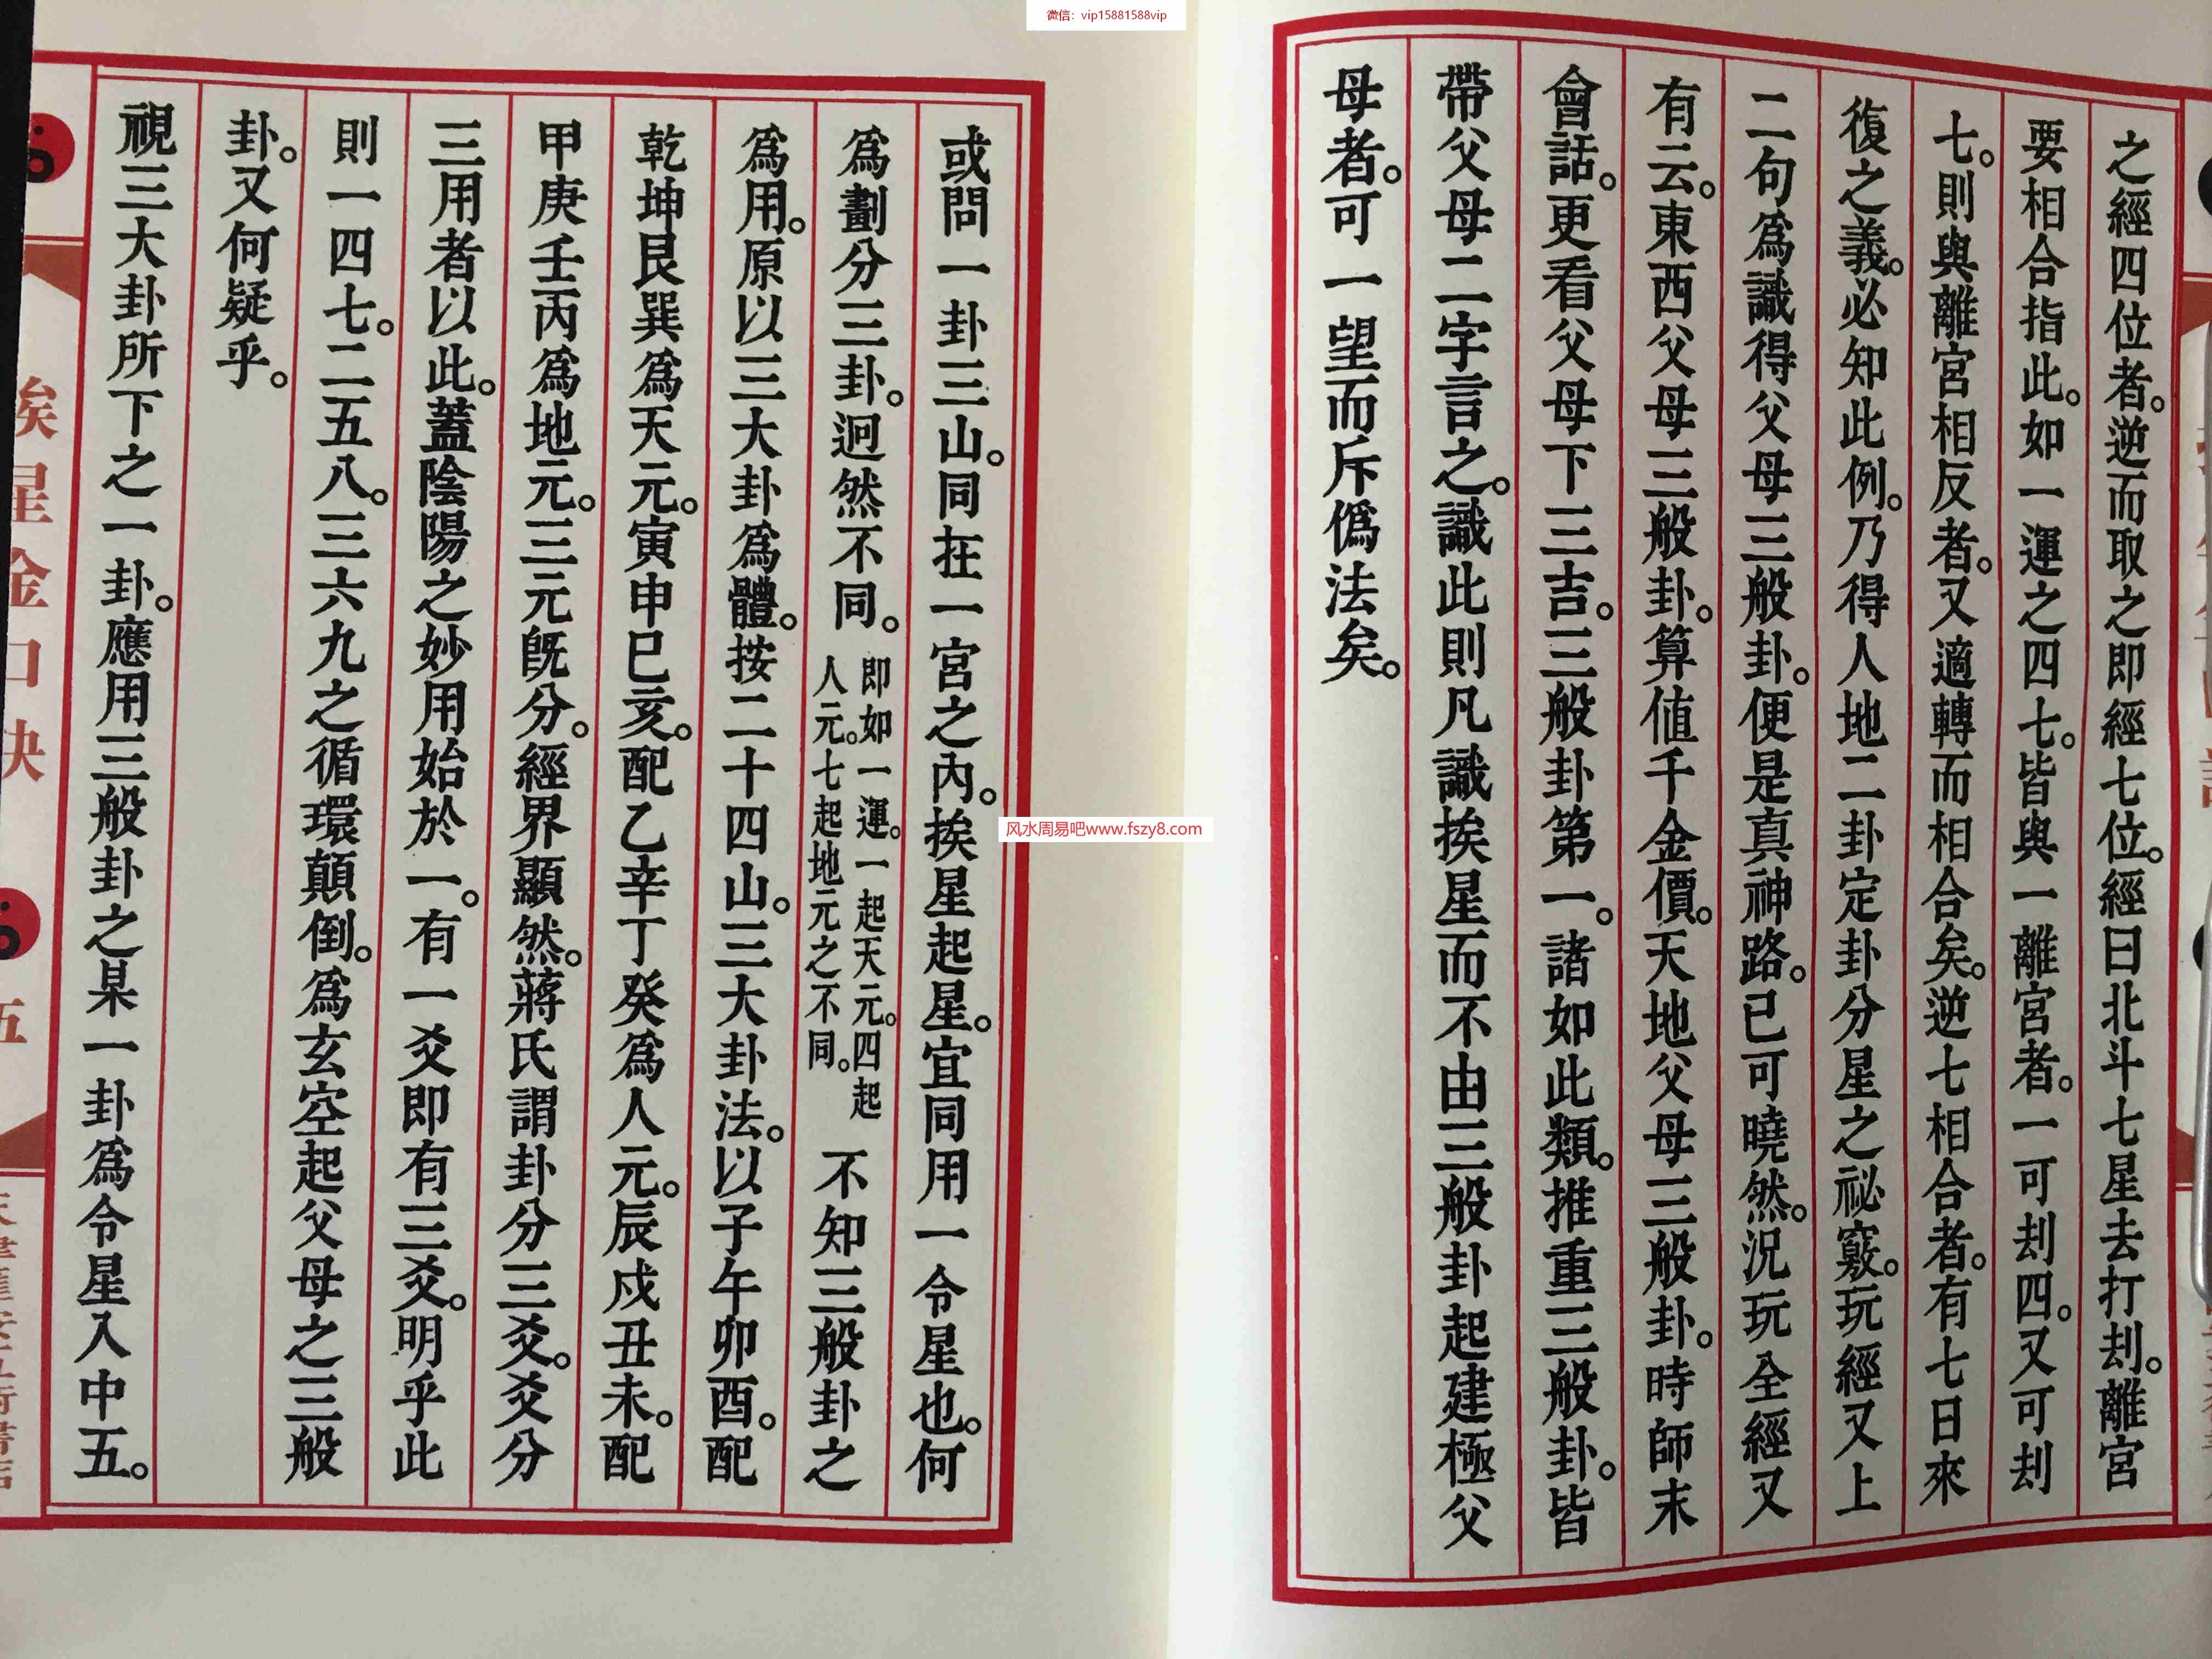 微信：vip15881588vip
之經四位者。逆而取之即經七位。經曰北斗七星去打刦。離宮
要相合指此。如一運之四七。皆與一離宮者。一可刦四。又可刦
七。則與離宮相反者。又適轉而相合矣。逆七相合者。有七日來
復之義。必知此例。乃得人地二卦定卦分星之祕竅。玩經又上
二句為識得父母三般卦。便是真神路。已可曉然。況玩全經又
有云。東西父母三般卦。算值千金價。天地父母三般卦。時師未
會話。更看父母下三吉。三般卦第一。諸如此類。推重三般卦。皆
帶父母二字言之。識此則凡識挨星而不由三般卦起建極父
母者。可一望而斥僞法矣。
或問一卦三山。同在一宮之內。挨星起星。宜同用一令星也。何
為劃分三卦。迥然不同。即如一運。一起天元。四起人元。七起地元之不同。不知三般卦之
為用。原以三大卦為體。按二十四山。三大卦法。以子午卯酉。配
乾坤艮巽為天元。寅申巳亥。配乙辛丁癸為人元。辰戌丑未。配
甲庚壬丙為地元。三元既分。經界顯然。蔣氏謂卦分三爻。爻分
三用者以此。蓋陰陽之妙用始於一。有一爻即有三爻。明乎此
則一四七。二五八。三六九之循環顛倒。為玄空起父母之三般
卦。又何疑乎。
視三大卦所下之一卦。應用三般卦之某一卦為令星入中五。
挨星金口訣
五
风水周易吧www.fszy8.com